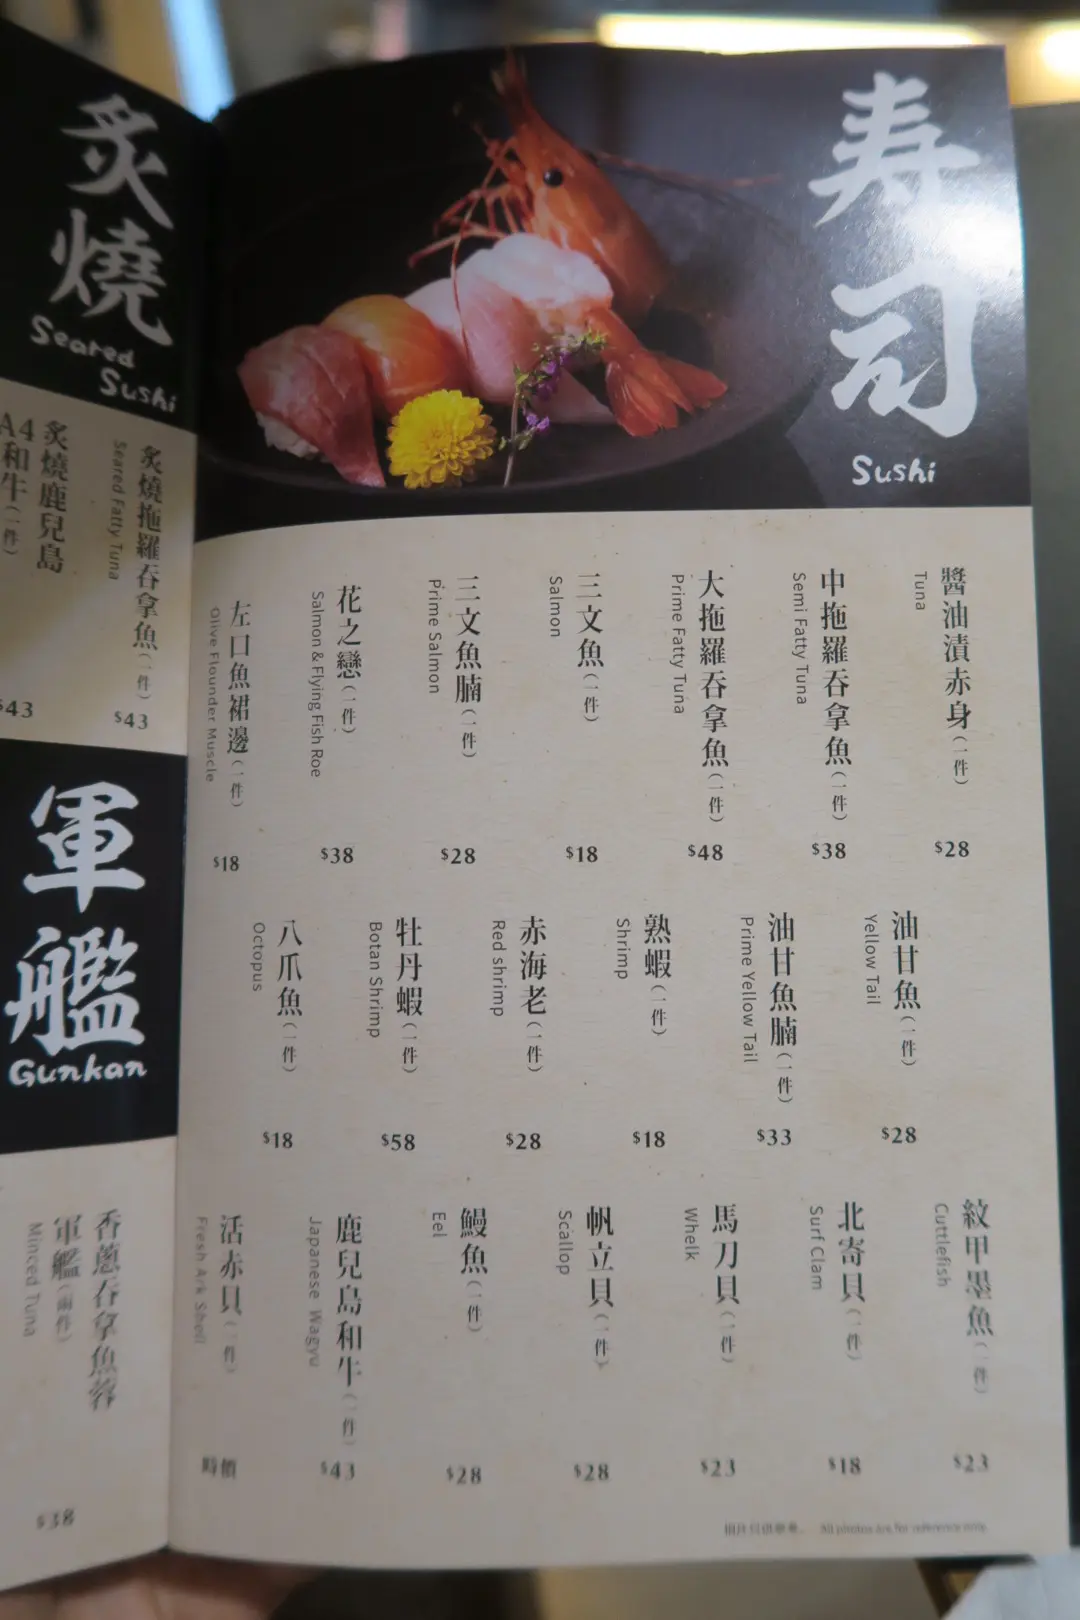 寿司
Sushi
醬油漬赤身(一件)
Tuna
$28
中拖羅吞拿魚(一件)
Semi Fatty Tuna
$38
大拖羅吞拿魚(一件)
Prime Fatty Tuna
$48
三文魚(一件)
Salmon
$18
三文魚腩(一件)
Prime Salmon
$28
花之戀(一件)
Salmon & Flying Fish Roe
$38
左口魚裙邊(一件)
Olive Flounder Muscle
$18
油甘魚(一件)
Yellow Tail
$28
油甘魚腩(一件)
Prime Yellow Tail
$33
熟蝦(一件)
Shrimp
$18
赤海老(一件)
Red shrimp
$28
牡丹蝦(一件)
Botan Shrimp
$58
八爪魚(一件)
Octopus
$18
紋甲墨魚(一件)
Cuttlefish
$23
北寄貝(一件)
Surf Clam
$18
馬刀貝(一件)
Whelk
$23
帆立貝(一件)
Scallop
$28
鰻魚(一件)
Eel
$28
鹿兒島和牛(一件)
Japanese Wagyu
$43
活赤貝(一件)
Fresh Ark Shell
時價
All photos are for reference only.
炙燒
Seared
Sushi
炙燒拖羅吞拿魚(一件)
Seared Fatty Tuna
$43
炙燒鹿兒島
A4和牛(一件)
$43
軍艦
Gunkan
香蔥吞拿魚蓉
軍艦(兩件)
Minced Tuna
$38